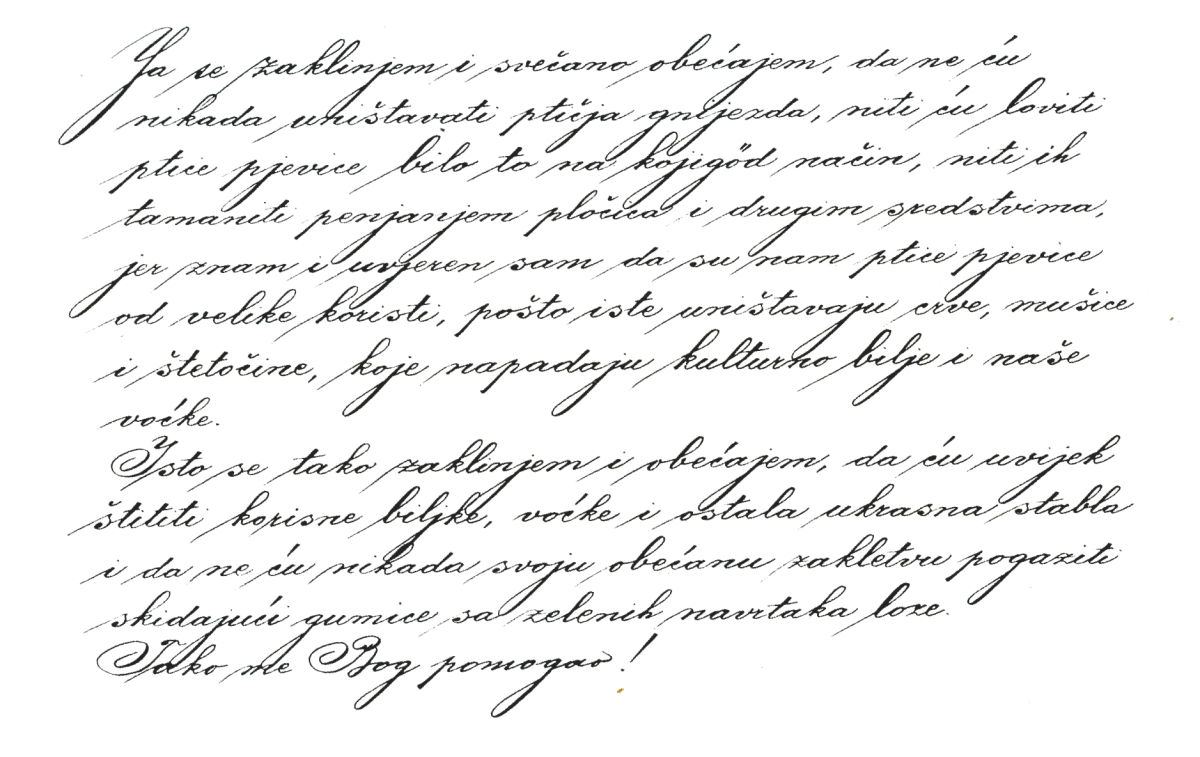 Ja se zaklinjem i svečano obećajem, da ne ću
nikada uništavati ptičja gnijezda, niti ću loviti
ptice pjevice bilo to na kojigöd način, niti ih
tamaniti penjanjem pločica i drugim sredstvima,
jer znam i uvjeren sam da su nam ptice pjevice
od velike koristi, pošto iste uništavaju crve, mušice
i štetočine, koje napadaju kulturno bilje i naše
voćke.
Isto se tako zaklinjem i obećajem, da ću uvijek
štititi korisne biljke, voćke i ostala ukrasna stabla
i da ne ću nikada svoju obećanu zakletvu pogaziti
skidajući gumice sa zelenih navrtaka loze.
Tako me Bog pomogao!